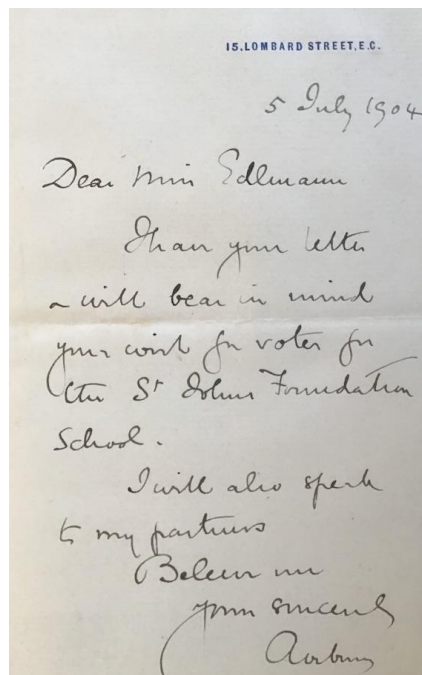 15, LOMBARD STREET, E.C.
5 July 1904
Dear Miss Edlmann
I have your letter
& will bear in mind
your wish for votes for
the St Johns Foundation
School.
I will also speak
to my partners
Believe me
yours sincerely
Avebury